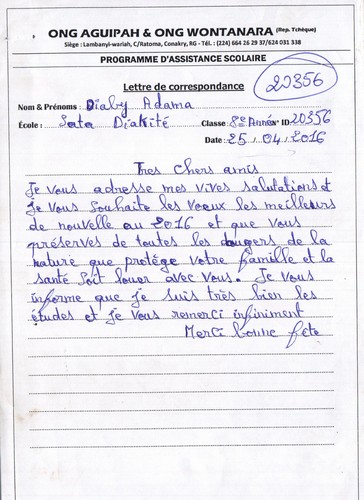 ONG AGUIPAH & ONG WONTANARA (Rep. Tchèque)
Siège : Lambanyi-wariah, C/Ratoma, Conakry, RG - Tél. : (224) 664 26 29 37/624 031 338
PROGRAMME D'ASSISTANCE SCOLAIRE
Lettre de correspondance
20356
Nom & Prénoms : Diaby Adama
École : Sata Diakité Classe : 8e Année N° ID: 20356
Date : 25 / 04 / 2016
Tres chers amis
Je vous adresse mes vives salutations et
Je vous Souhaite les voeux les meilleurs
de nouvelle au 2016 et que vous
préserves de toutes les dangers de la
nature que protège votre famille et la
santé Soit louer avec vous. Je vous
informe que Je suis très bien les
études et Je vous remerci infiniment
Merci bonne fête